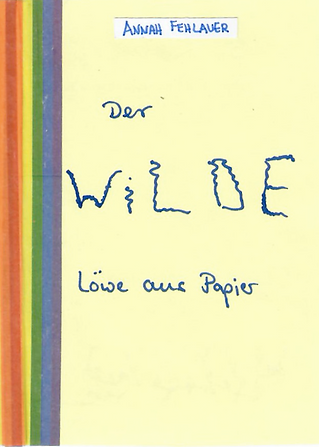 ANNAH FEHLAUER
Der
WiLDE
Löwe aus Papier